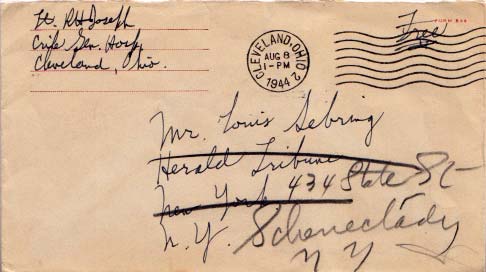 Lt. RH Joseph
Crile Gen. Hosp.
Cleveland, Ohio.
CLEVELAND, OHIO
AUG 8
1-PM
1944
2
Free
Mr. Louis Sebring
Herald Tribune
New York 434 State St
N.Y. Schenectady
N Y